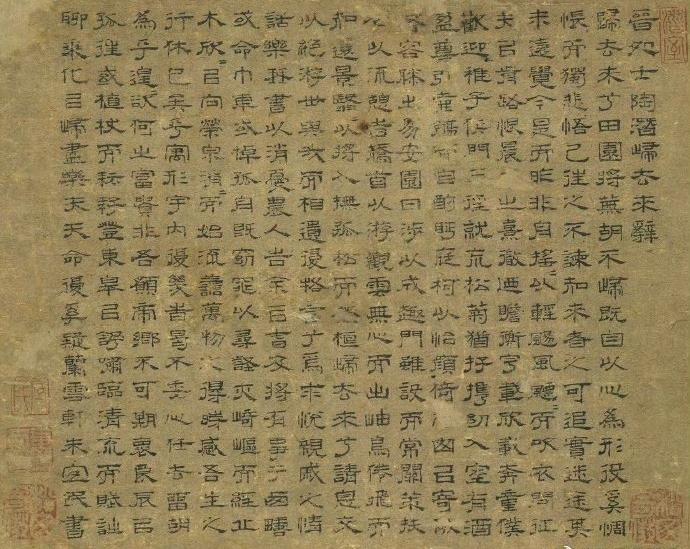 晉処士陶潛歸去來辭
歸去來兮田園將蕪胡不歸既自以心為形役奚惆
悵而獨悲悟已往之不諫知來者之可追實迷途其
未遠覺今是而昨非舟搖以輕颺風飄而吹衣問征
夫以前路恨晨之熹微迺瞻衡宇載欣載奔童僕
歡迎稚子候門三徑就荒松菊猶存攜幼入室有酒
盈尊引壺觴以自酌眄庭柯以怡顏倚窗以寄傲
容膝之易安園日涉以成趣門雖設而常關策扶
以流憩時矯首以游觀雲無心而出岫鳥倦飛而
知還景翳以將入撫孤松而盤桓歸去來兮請息交
以絕游世與我而相遺復駕言兮焉求悅親戚之情
話樂琴書以消憂農人告余以春及將有事于西疇
或命巾車或棹孤舟既窈窕以尋壑亦崎嶇而經丘
木欣以向榮泉涓而始流羨萬物之得時感吾生之
行休已矣乎寓形宇内復幾時曷不委心任去留胡
為乎遑欲何之富貴非吾願帝鄉不可期懷良辰以
孤往或植杖而耘耔登東皋以舒嘯臨清流而賦詩
聊乘化以歸盡樂夫天命復奚疑蘭雪軒朱書